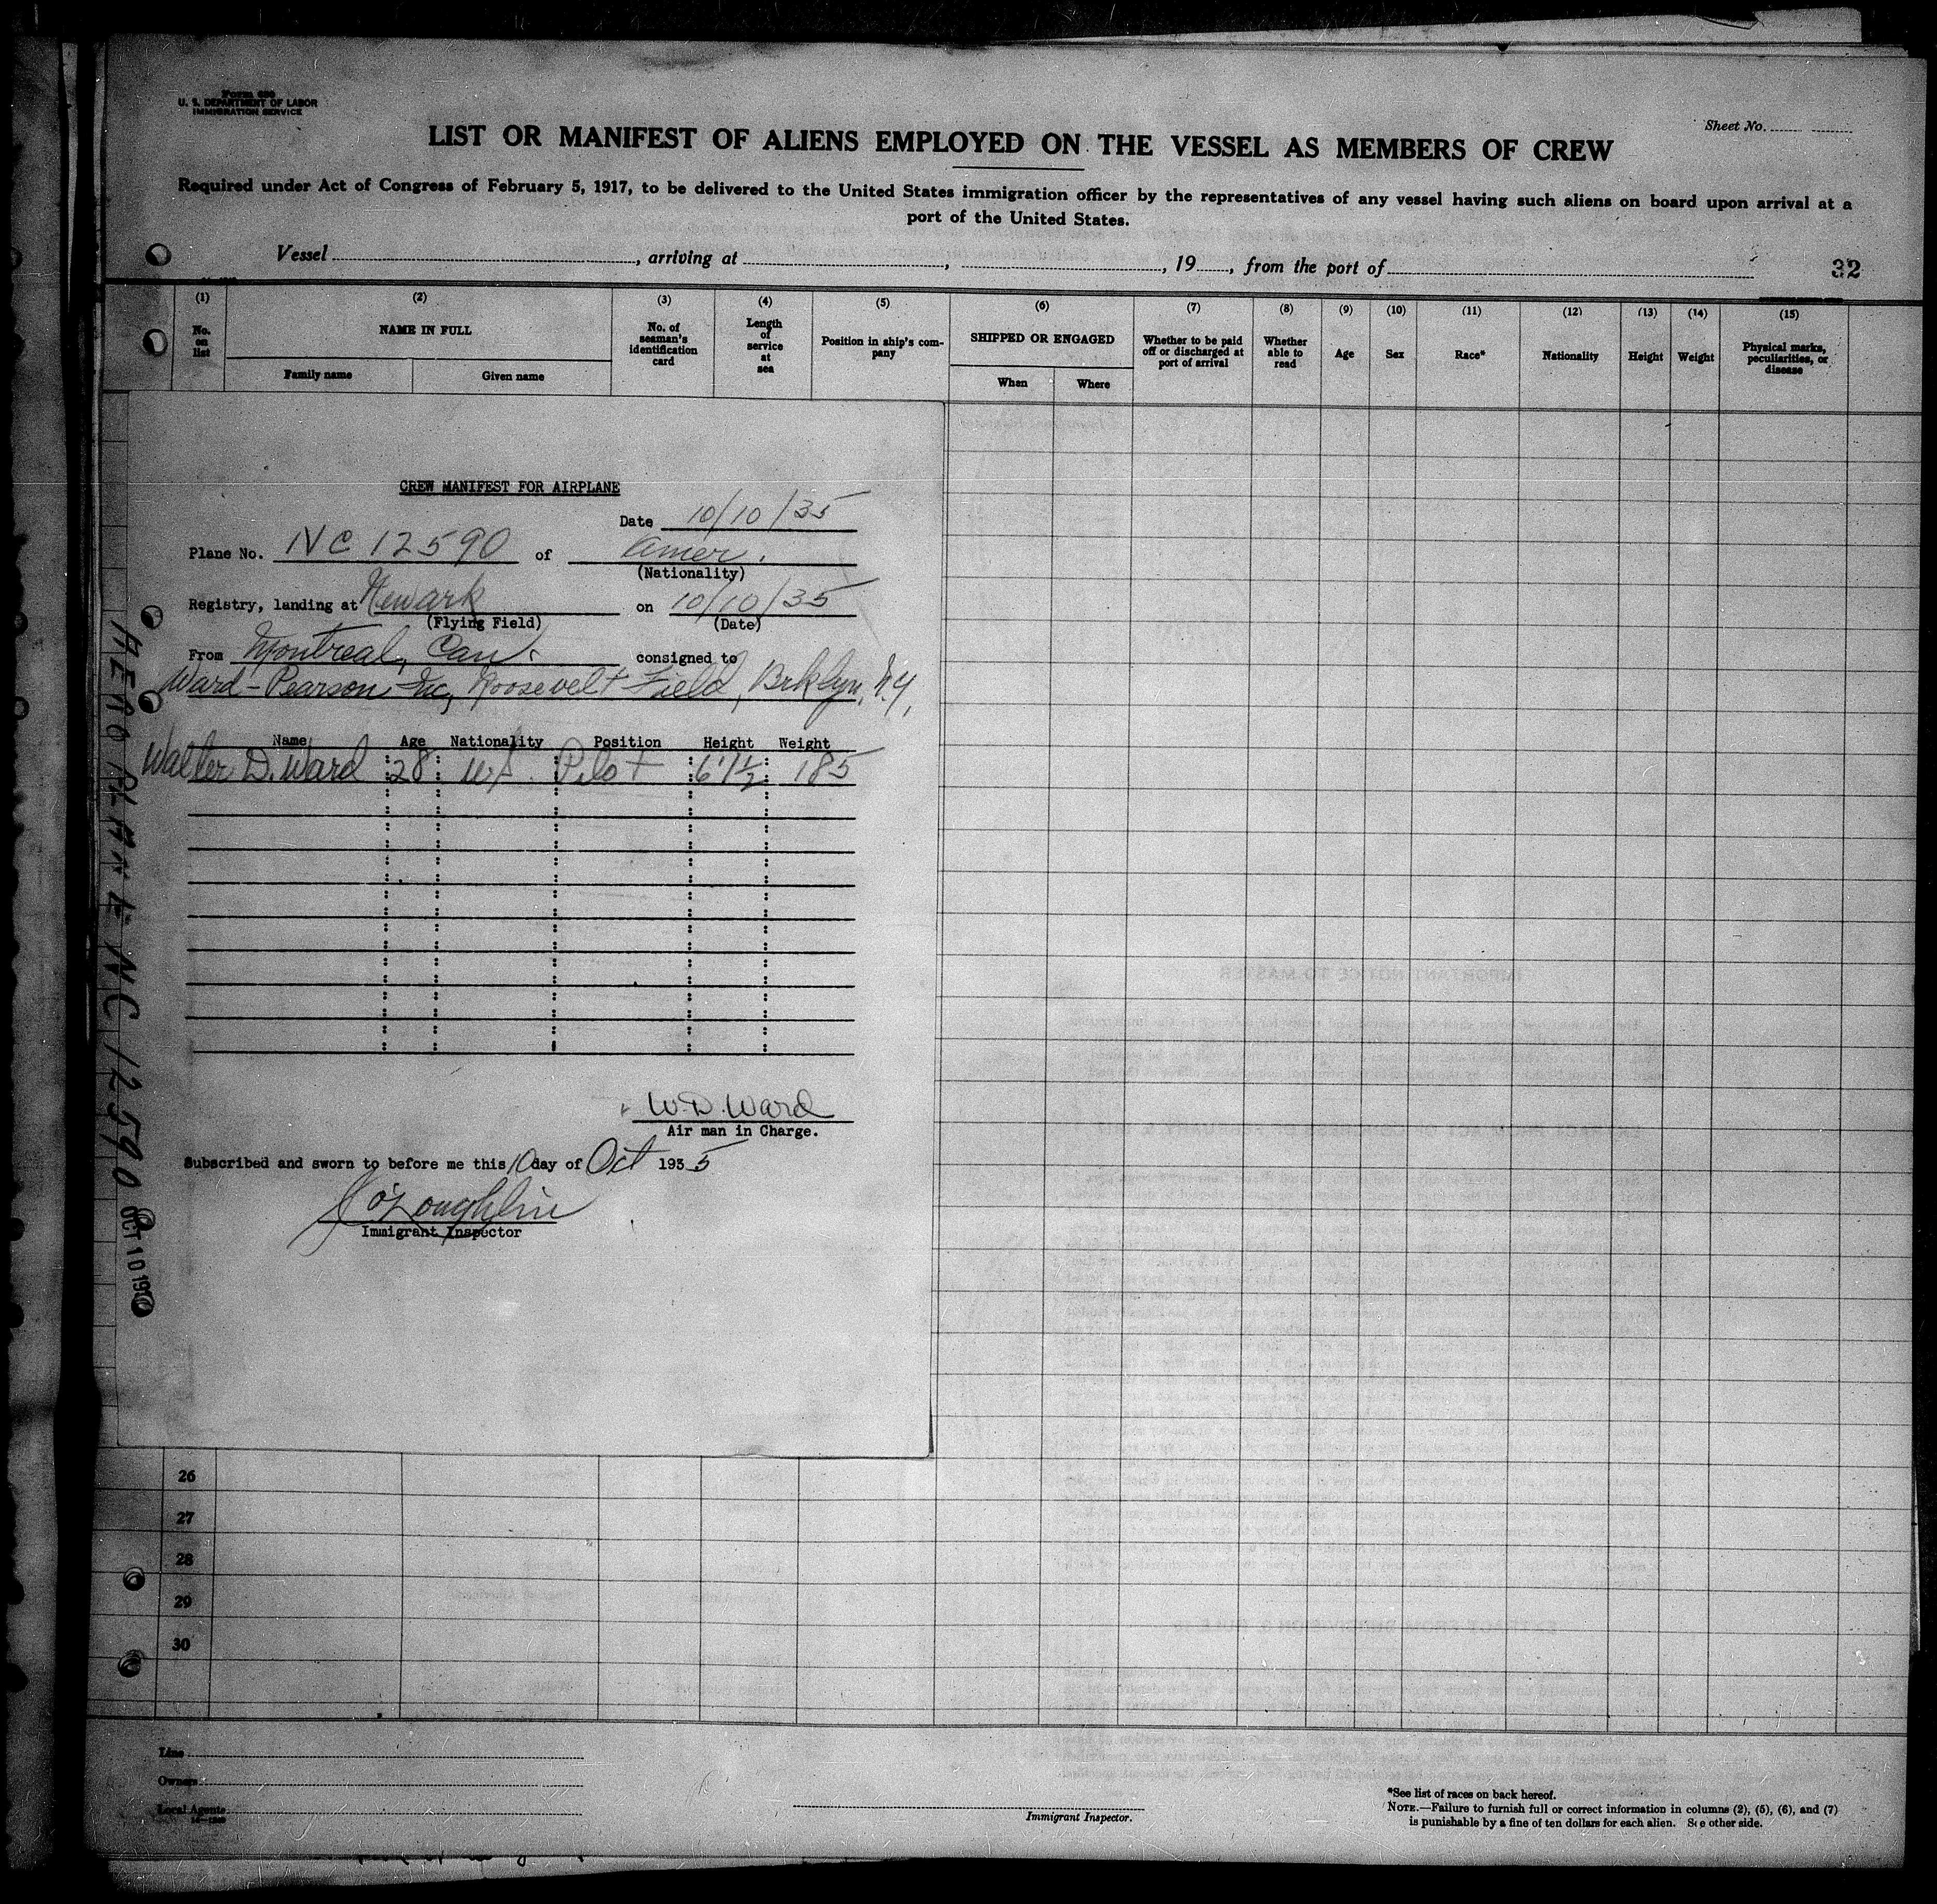 Form 680
U. S. DEPARTMENT OF LABOR
IMMIGRATION SERVICE
Sheet No.
LIST OR MANIFEST OF ALIENS EMPLOYED ON THE VESSEL AS MEMBERS OF CREW
Required under Act of Congress of February 5, 1917, to be delivered to the United States immigration officer by the representatives of any vessel having such aliens on board upon arrival at a
port of the United States.
Vessel , arriving at , , 19 , from the port of
32
(1) (2) (3) (4) (5) (6) (7) (8) (9) (10) (11) (12) (13) (14) (15)
No. on list
NAME IN FULL
Family name Given name
No. of seaman's identification card
Length of service at sea
Position in ship's company
SHIPPED OR ENGAGED
When Where
Whether to be paid off or discharged at port of arrival
Whether able to read
Age
Sex
Race*
Nationality
Height
Weight
Physical marks, peculiarities, or disease
CREW MANIFEST FOR AIRPLANE
Date 10/10/35
Plane No. NC 12590 of Amer.
(Nationality)
Registry, landing at Newark on 10/10/35
(Flying Field) (Date)
From Montreal, Can. consigned to
Ward-Pearson Inc, Roosevelt Field, Brklyn, N.Y.
Name Age Nationality Position Height Weight
Walter D. Ward 28 U.S. Pilot 6'1½ 185
W. D. Ward
Air man in Charge.
Subscribed and sworn to before me this 10 day of Oct 1935
J O'Loughlin
Immigrant Inspector
AEROPLANE NC 12590
OCT 10 19
26
27
28
29
30
Line
Owners
Local Agents
Immigrant Inspector.
*See list of races on back hereof.
NOTE.—Failure to furnish full or correct information in columns (2), (5), (6), and (7)
is punishable by a fine of ten dollars for each alien. See other side.